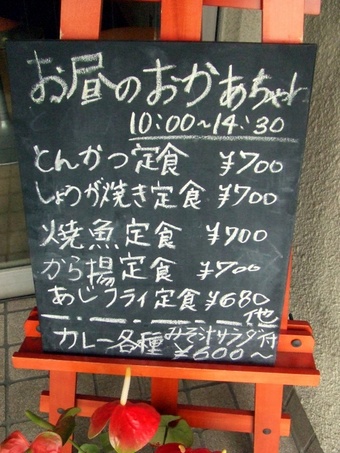 お昼のおかあちゃん
10:00~14:30
とんかつ定食 ¥700
しょうが焼き定食 ¥700
焼魚定食 ¥700
から揚定食 ¥700
あじフライ定食 ¥680
他
カレー各種 みそ汁サラダ付
¥600~